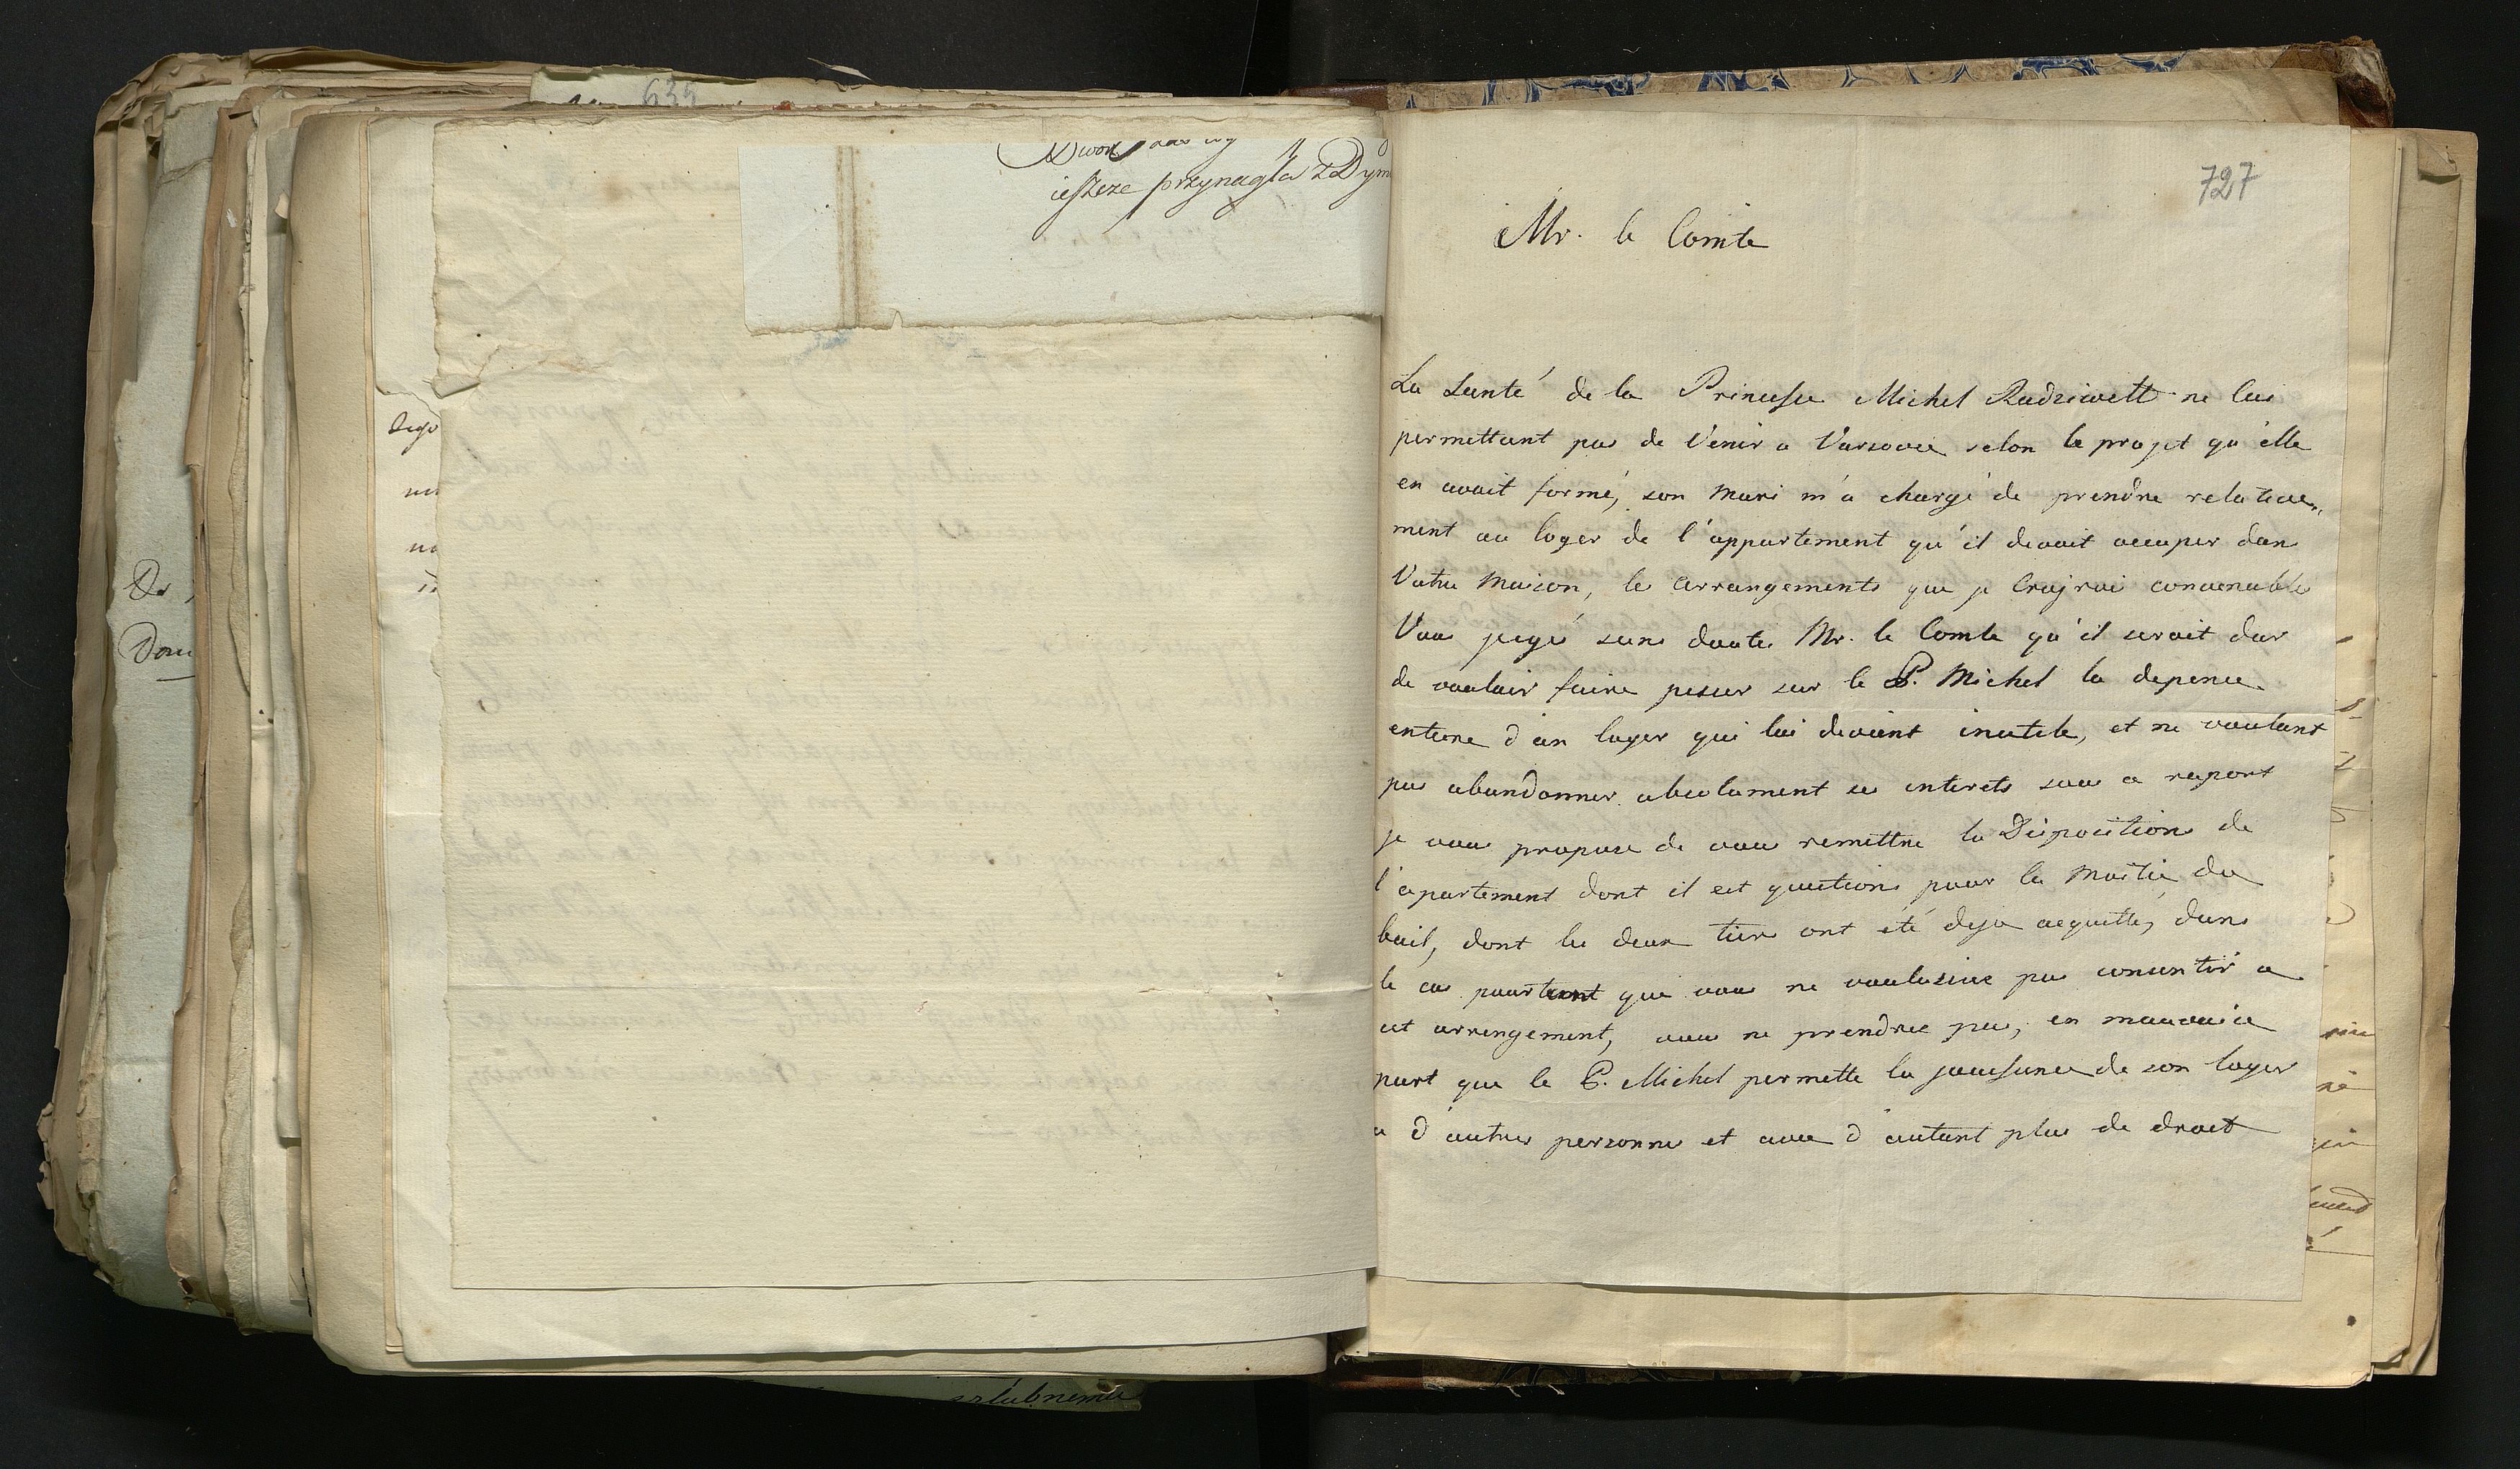 639
jeszcze przynagla z Dym
727
Mr. le Comte
La santé de la Princesse Michel Radziwill ne lui
permettant pas de Venir a Varsovie selon le projet qu'elle
en avait formé, son mari m'a chargé de prendre relative-
ment au loyer de l'appartement qu'il devait occuper dans
Votre Maison, les arrangements que je Crojrai convenables
Vous jugé sans doute Mr. le Comte qu'il serait dur
de vouloir faire peser sur le P. Michel la depence
entiere d'un loyer qui lui devient inutile, et ne voulant
pas abandonner absolument ses interets sous ce raport
je vous propose de vous remettre la Disposition de
l'apartement dont il est question pour la Moitié du
bail, dont les deux tiers ont été deja acquittés, dans
le cas pourtant que vous ne voulusiez pas consentir a
cet arrengement, vous ne prendrez pas, en mauvaise
part que le P. Michel permette la jouissance de son loyer
a d'autres personnes et avec d'autant plus de droit
Dom